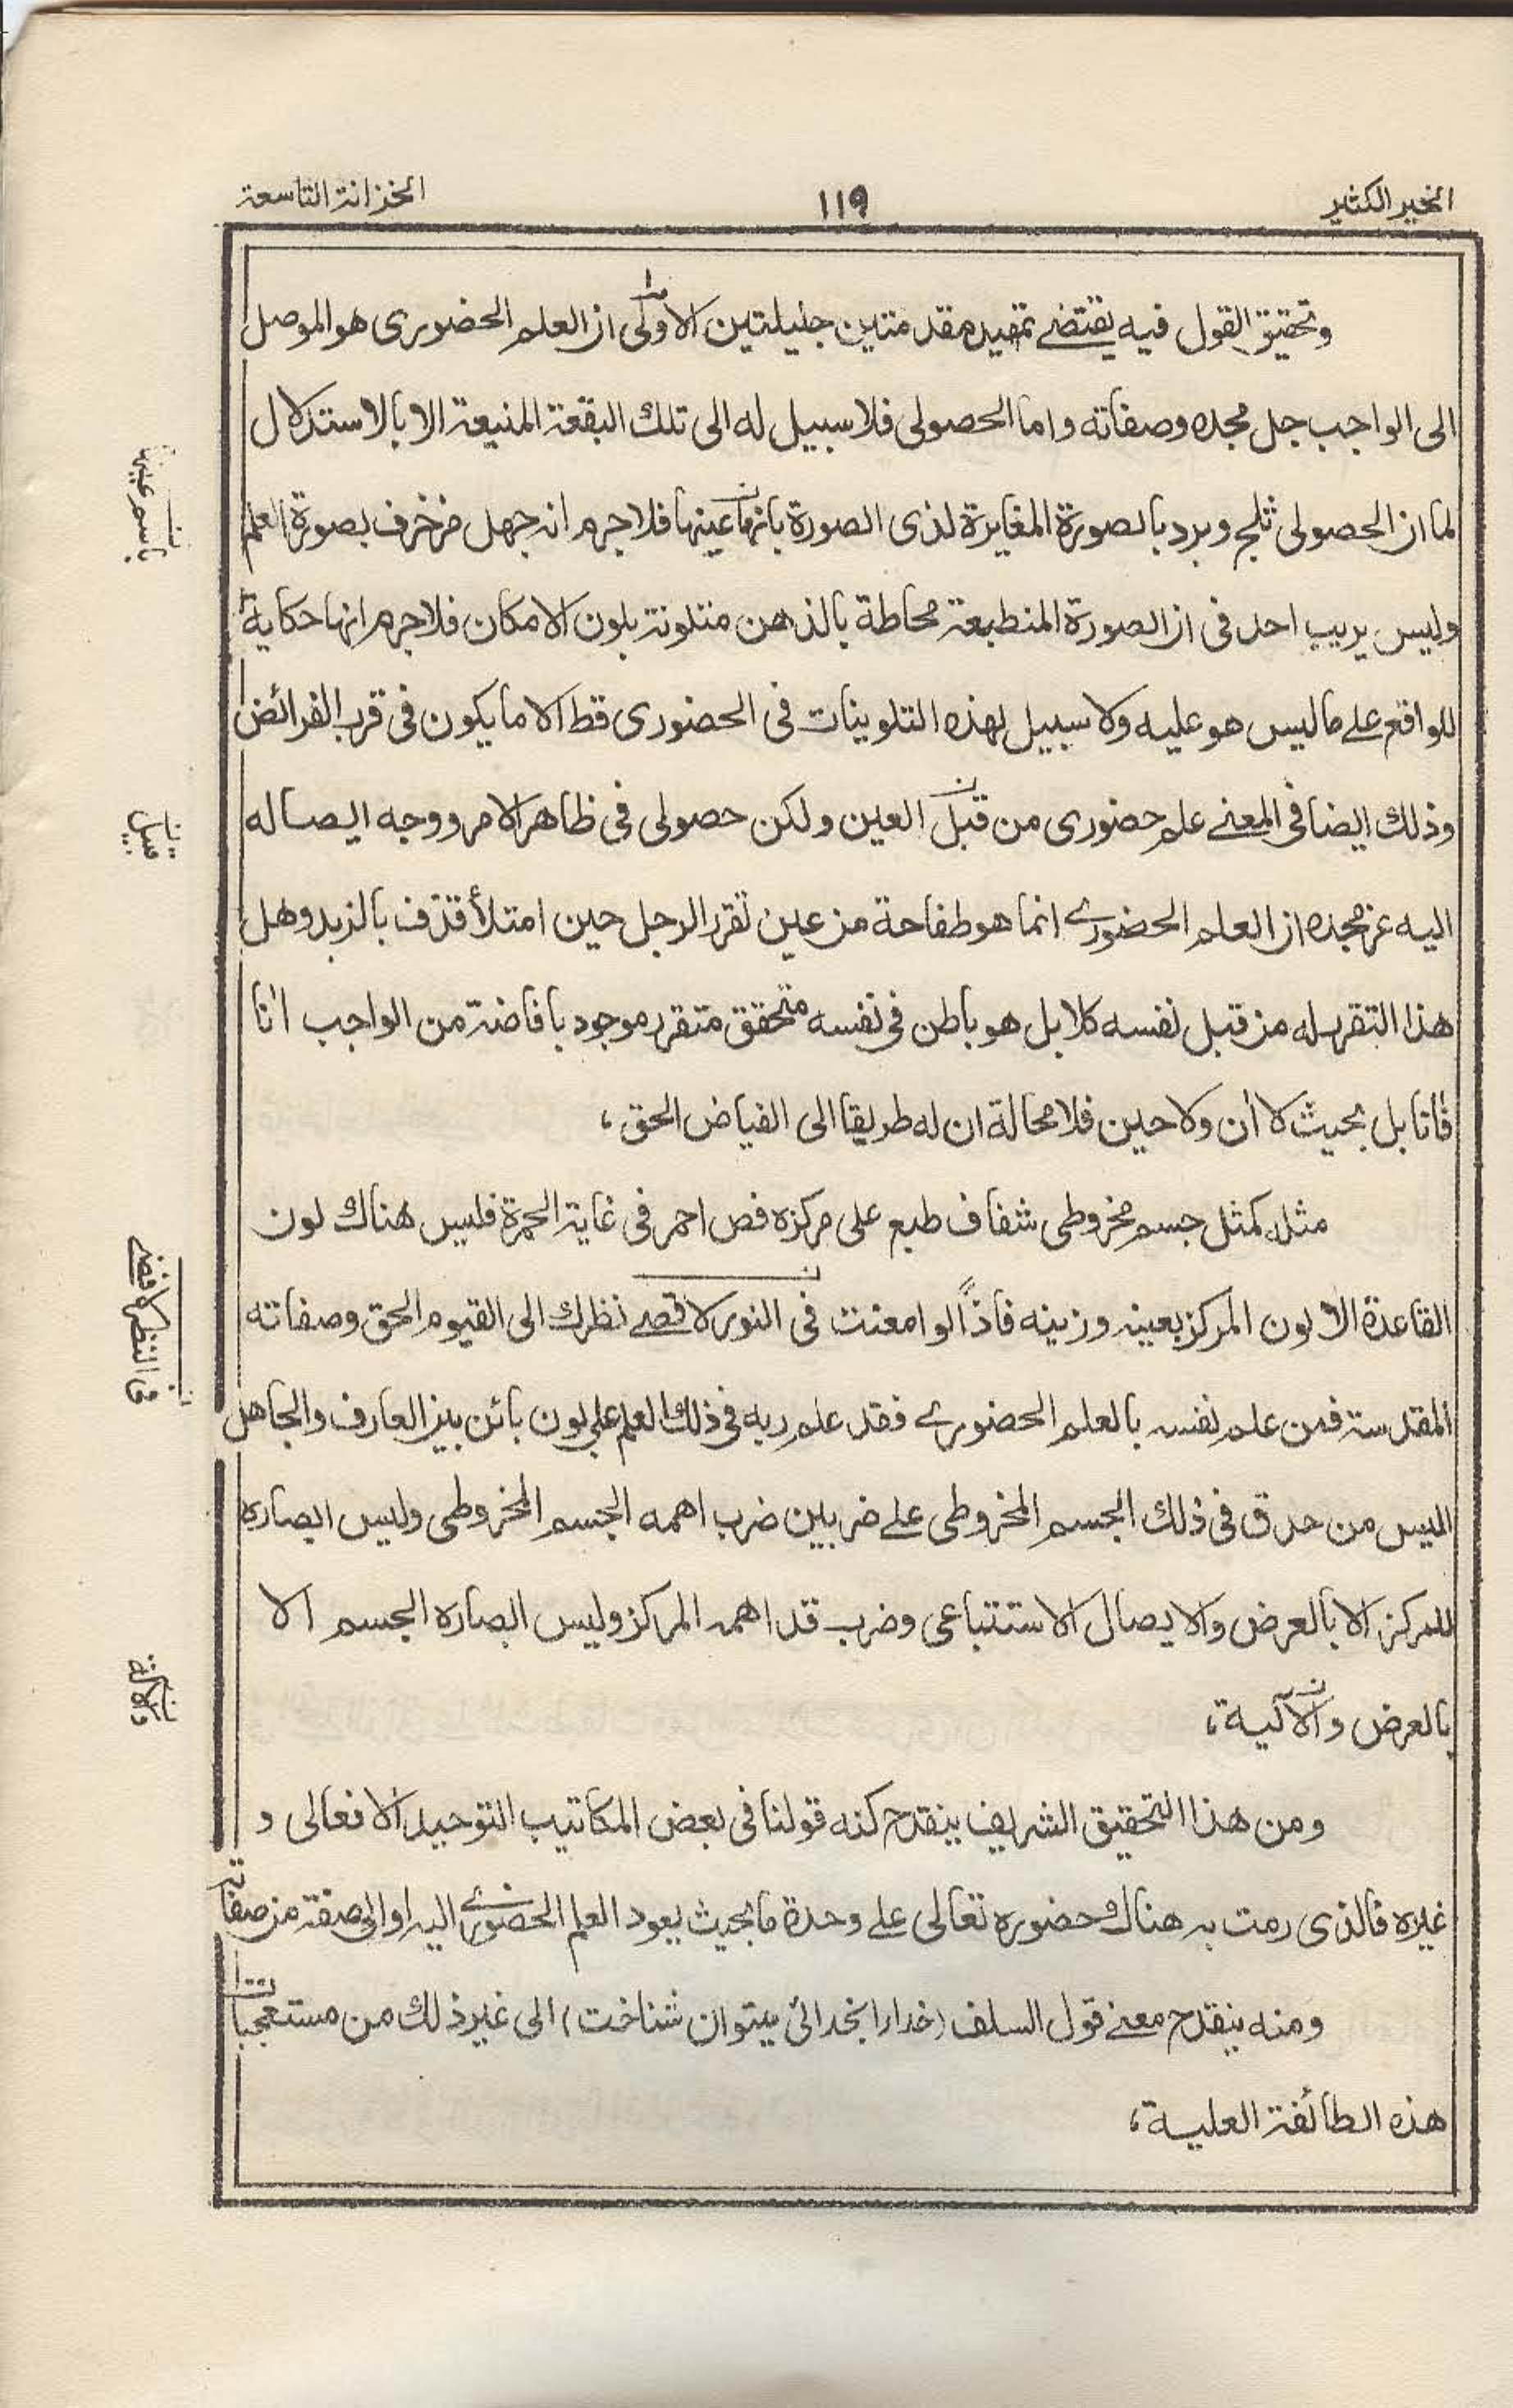 الخير الكثير ١١٩ الخزانة التاسعة
وتحقيق القول فيه يقتضے تمهيد مقدمتين جليلتين الاولى ان العلم الحضورى هو الموصل
الى الواجب جل مجده وصفاته واما الحصولى فلا سبيل له الى تلك البقعة المنيعة الا بالاستدلال
لما ان الحصولى ثلج وبرد بالصورة المغايرة لذى الصورة بانها عينها فلاجرم انه جهل مزخرف بصورة العلم
وليس يريب احد فى ان الصورة المنطبعة محاطة بالذهن متلونة بلون الامكان فلاجرم انها حكاية
للواقع علے ما ليس هو عليه ولا سبيل لهذه التلوينات فى الحضورى قط الا ما يكون فى قرب الفرائض
وذلك ايضا فى المعنے علم حضورى من قبل العين ولكن حصولى فى ظاهر الامر ووجه ايصاله
اليه عز مجده ان العلم الحضورے انما هو طفاحة من عين تقرر الرجل حين امتلأ قذف بالزبد وهل
هذا التقرر له من قبل نفسه كلا بل هو باطن فى نفسه متحقق متقرر موجود بافاضة من الواجب اٰنا
فاٰنا بل بحيث لا اٰن ولا حين فلا محالة ان له طريقا الى الفياض الحق،
مثله كمثل جسم مخروطى شفاف طبع على مركزه فص احمر فى غاية الحمرة فليس هناك لون
القاعدة الا لون المركز بعينه وزينه فاذًا لو امعنت فى النور لا قصے نظرك الى القيوم الحق وصفاته
المقدسة فمن علم نفسه بالعلم الحضورے فقد علم ربه فى ذلك العلم على بون بائن بين العارف والجاهل
اليس من حدق فى ذلك الجسم المخروطى علے ضربين ضرب اهمه الجسم المخروطى وليس ابصاره
للمركز الا بالعرض والايصال الاستتباعى وضرب قد اهمه المركز وليس ابصاره الجسم الا
بالعرض والآلية،
ومن هذا التحقيق الشريف ينقدح كنه قولنا فى بعض المكاتيب التوحيد الافعالى و
غيره فالذى رمت به هناك حضوره تعالى علے وحدة ما بحيث يعود العلم الحضورے اليه او الى صفة من صفاته
ومنه ينقدح معنے قول السلف (خدا را بخدائى ميتوان شناخت) الى غير ذلك من مستعجبات
هذه الطائفة العلية،
باسم عينها
قبيل
فى النظر لافضے